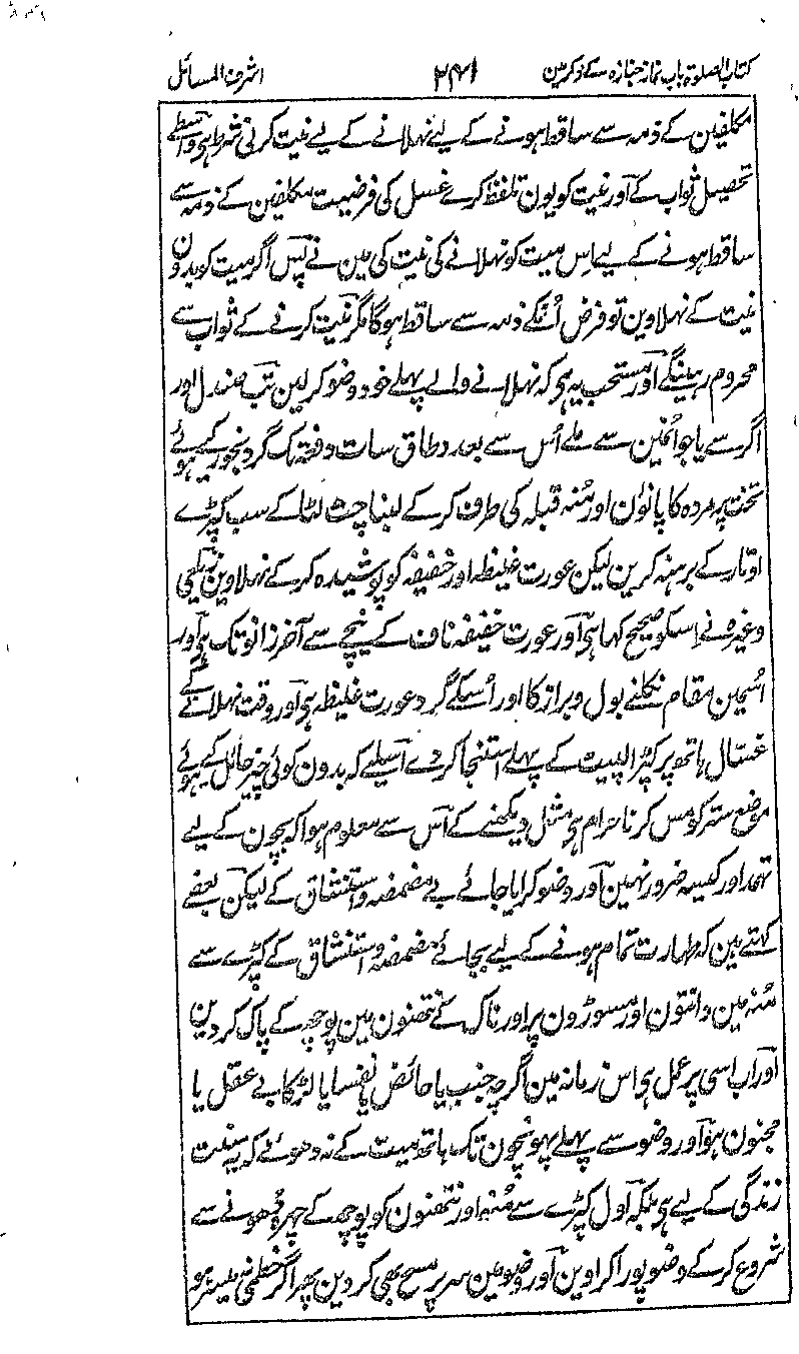 کتاب الصلوٰۃ باب نماز جنازہ کے ذکر مین ۲۴۱ اشرف المسائل
مکلفین کے ذمہ سے ساقط ہونے کے لیے نہلانے کے لیے نیت کرنی شرط ہی واسطے
تحصیل ثواب کے اور نیت کو یون تلفظ کرے غسل کی فرضیت مکلفین کے ذمہ سے
ساقط ہونے کے لیے اِس میت کو نہلانے کی نیت کی مین نے پس اگر میت کو بدون
نیت کے نہلاوین تو فرض اُنکے ذمہ سے ساقط ہوگا مگر نیت کرنے کے ثواب سے
محروم رہینگے اور مستحب یہ ہی کہ نہلانے والے پہلے خود وضو کر لین تب صندل اور
اگر سے یا جو اُنمین سے ملے اُس سے بعد وطاق سات دفعہ تک گرد بخور کیے ہوئے
تخت پر مردہ کا پانوُن اور مُنہ قبلہ کی طرف کر کے لنبا چت لٹا کے سب کپڑے
اوتار کے برہنہ کرین لیکن عورت غلیظہ اور خفیفہ کو پوشیدہ کر کے نہلاوین زیلعی
وغیرہ نے اِسکو صحیح کہا ہی اور عورت خفیفہ ناف کے نیچے سے آخر زانو تک ہی اور
اُسمین مقام نکلنے بول وبراز کا اور اُسکے گرد عورت غلیظہ ہی اور وقت نہلانے کے
غسّال ہاتھ پر کپڑا لپیٹ کے پہلے استنجا کر دے اسلیے کہ بدون کوئی چیز حائل کیے ہوئے
موضع ستر کو مس کرنا حرام ہی مثل دیکھنے کے اس سے معلوم ہوا کہ بچون کے لیے
تہمد اور کیسہ ضرور نہین اور وضو کرایا جائے بے مضمضہ و استنشاق کے لیکن بعضے
کہتے ہین کہ طہارت تمام ہونے کے لیے بجائے مضمضہ و استنشاق کے کپڑے سے
مُنہ مین دانتون اور مسوڑون پر اور ناک کے نتھنون مین پوچھ کے پاک کر دین
اور اب اسی پر عمل ہی اس زمانہ مین اگرچہ جنب یا حائض یا نفسا یا لڑکا بے عقل یا
مجنون ہو اور وضو سے پہلے پہونچون تک ہاتھ میت کے نہ دھوئے کہ یہ سنت
زندگی کے لیے ہی بلکہ اول کپڑے سے مُنہ اور نتھنون کو پوچھ کے چہرہ دُھونے سے
شروع کر کے وضو پورا کراوین اور وضو مین سر پر مسح بھی کر دین پھر اگر خطمی میسر ہو